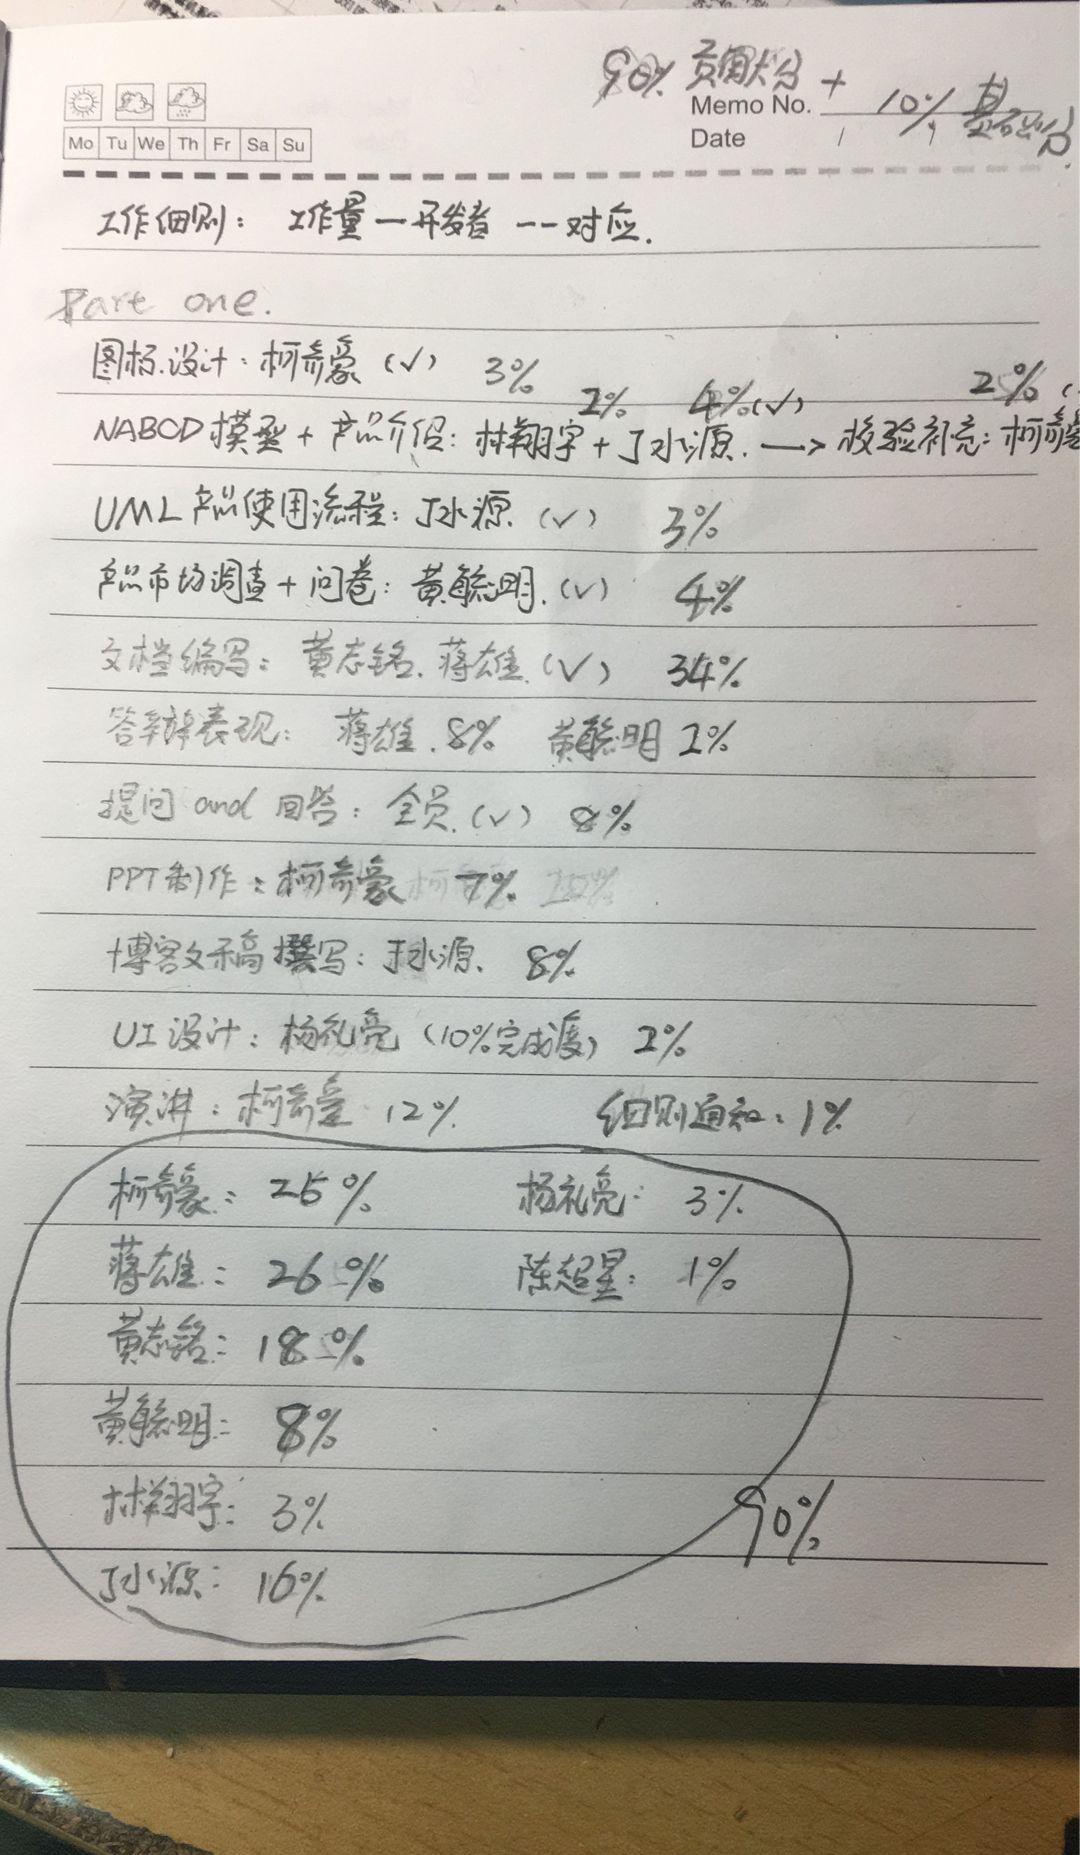 90% 贡献分 + 10% 基础分
Memo No.
Date / /
Mo Tu We Th Fr Sa Su
工作细则： 工作量一开发者 一一对应.
Part one.
图标设计：柯奇豪 (√) 3%
2% 4%(√) 2%(
NABCD模型 + 产品介绍：林翔宇 + 丁水源. —> 校验补充：柯奇豪
UML产品使用流程：丁水源. (√) 3%
产品市场调查 + 问卷：黄毓明. (√) 4%
文档编写：黄志铭. 蒋雄 (√) 34%
答辩表现： 蒋雄. 8% 黄毓明 2%
提问 and 回答：全员. (√) 8%
PPT制作：柯奇豪 7%
博客文稿撰写：丁水源. 8%
UI设计：杨礼亮 (10%完成度) 2%
演讲：柯奇豪 12% 细则通知：1%
柯奇豪： 25% 杨礼亮： 3%
蒋雄： 26% 陈超星： 1%
黄志铭： 18%
黄毓明： 8%
林翔宇： 3%
90%
丁水源： 16%